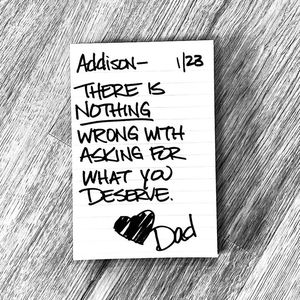 Addison- 1/23
THERE IS
NOTHING
WRONG WITH
ASKING FOR
WHAT YOU
DESERVE.
Dad